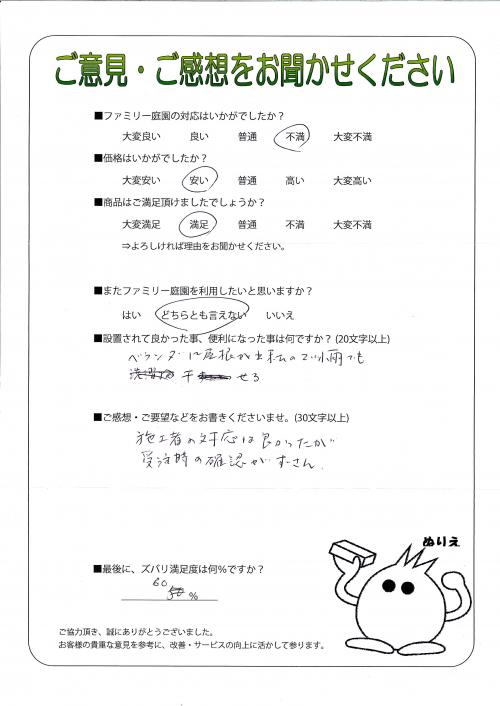 ご意見・ご感想をお聞かせください
■ファミリー庭園の対応はいかがでしたか？
大変良い 良い 普通 不満 大変不満
■価格はいかがでしたか？
大変安い 安い 普通 高い 大変高い
■商品はご満足頂けましたでしょうか？
大変満足 満足 普通 不満 大変不満
⇒よろしければ理由をお聞かせください。
■またファミリー庭園を利用したいと思いますか？
はい どちらとも言えない いいえ
■設置されて良かった事、便利になった事は何ですか？(20文字以上)
ベランダに屋根が出来たので小雨でも
干せる
■ご感想・ご要望などをお書きくださいませ。(30文字以上)
施工者の対応は良かったが
受注時の確認がずさん。
ぬりえ
■最後に、ズバリ満足度は何％ですか？
60
%
ご協力頂き、誠にありがとうございました。
お客様の貴重な意見を参考に、改善・サービスの向上に活かして参ります。